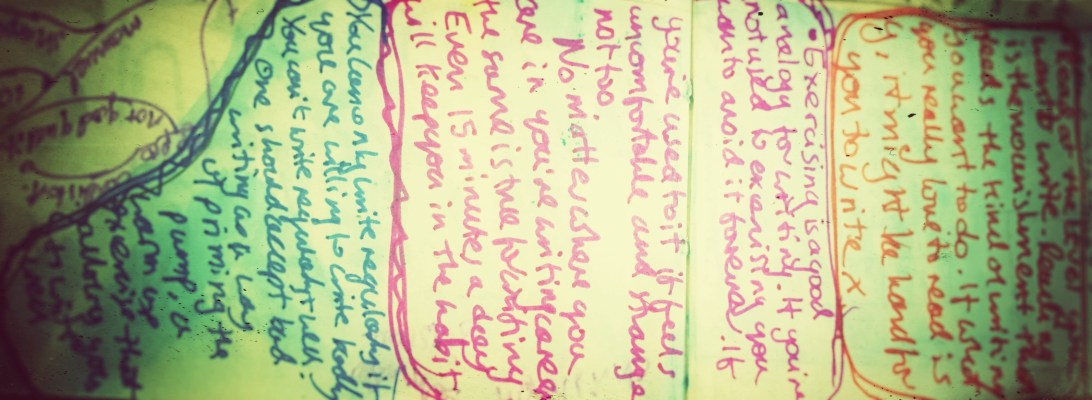 want to write. Read
is the nourishment that
feeds the kind of writing
you want to do. If what
you really love to read is
y, it might be hard for
you to write x.
• Exercising is a good
analogy for writing. If you're
not used to exercising you
want to avoid it forever. If
you're used to it, it feels
uncomfortable and strange
not to.
No matter where you
are in your writing career
the same is true for writing
Even 15 minutes a day
will keep you in the habit
You can only write regularly if
you are willing to write badly
You can't write regularly & well.
One should accept bad
writing as a way
of priming the
pump, a
warm up
exercise that
allows you
not good quality